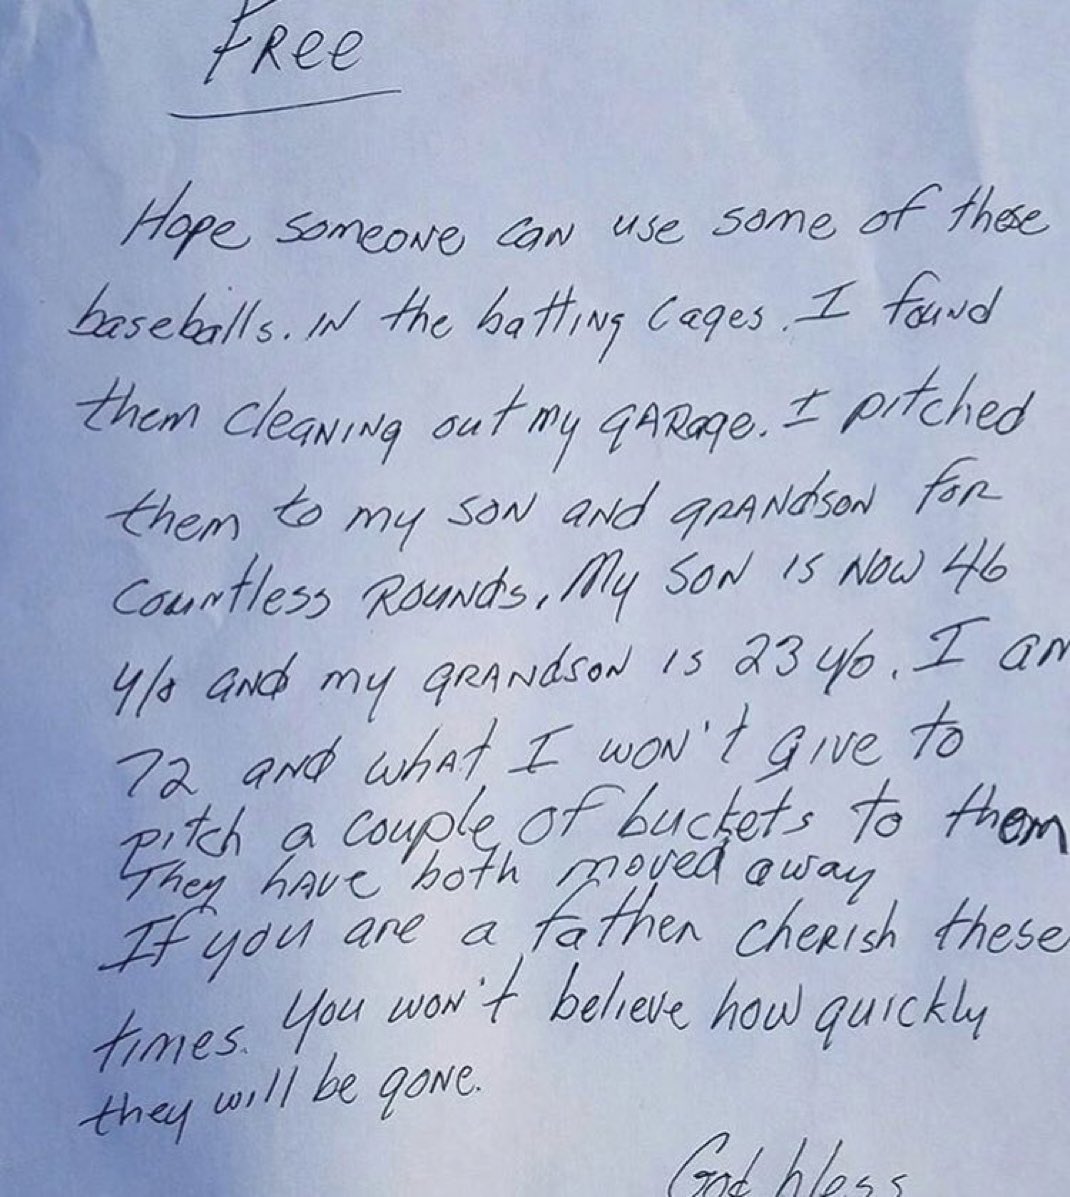 Free
Hope someone can use some of these
baseballs. IN the batting cages. I found
them cleaning out my garage. I pitched
them to my son and grandson for
countless rounds. My son is now 46
y/o and my grandson is 23 y/o. I am
72 and what I won't give to
pitch a couple of buckets to them
They have both moved away
If you are a father cherish these
times. You won't believe how quickly
they will be gone.
God bless